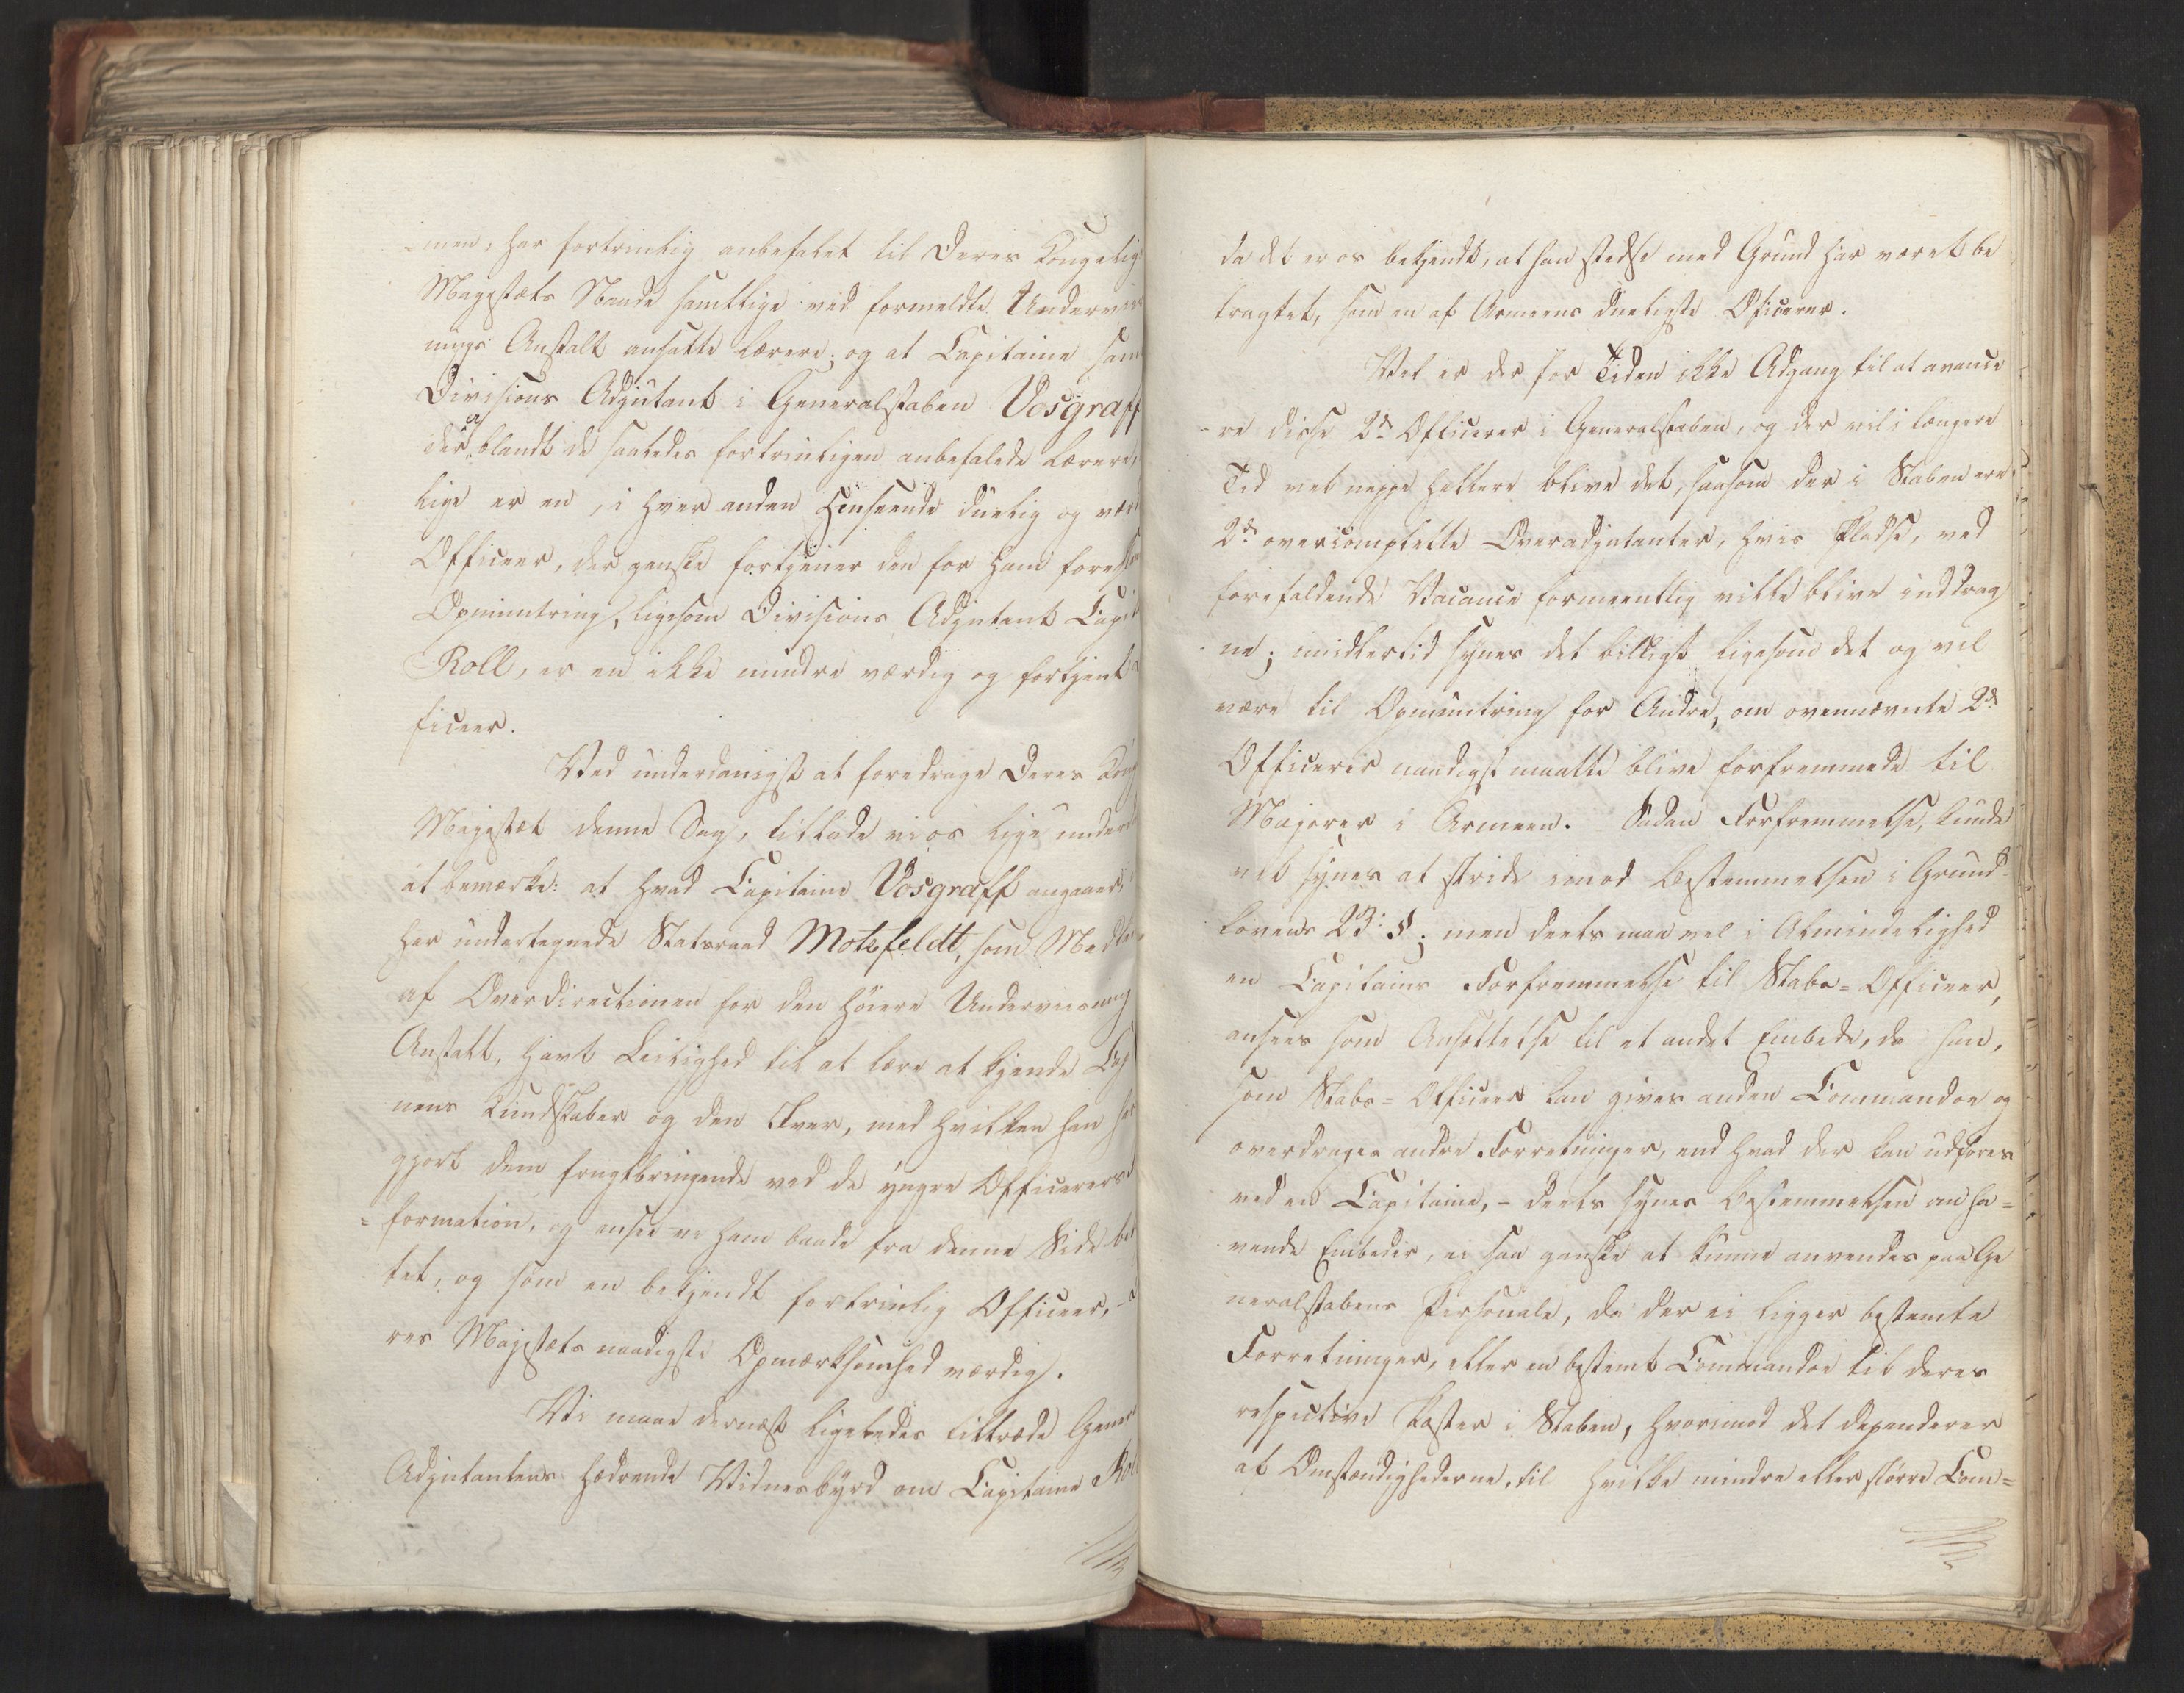 =men, har fortrinlig anbefalet til Deres Kongelig
Majestæts Naade samtlige ved formeldte Underviis
nings Anstalt ansatte Lærere; og at Capitaine sam
Divisions Adjutant i Generalstaben Vosgraff
der iblandt de saaledes fortrinligen anbefalede Lærere,
lige er en, i hver anden Henseende duelig og vær
Officeer, der ganske fortjener den for ham foresl
Opmuntring, ligesom Divisions Adjutant Capit
Roll, er en ikke mindre værdig og fortjent
ficeer.
Ved underdanigst at foredrage Deres Kong
Majestæt denne Sag, tillade vi os lige under
at bemærke: at hvad Capitaine Vosgraff angaaer,
har undertegnede Statsraad Motzfeldt, som Medl
af Overdirectionen for den høiere Underviisning
Anstalt, havt Leilighed til at lære at kjende Cap
nens Kundskaber og den Iver, med hvilken han har
gjort dem frugtbringende ved de yngre Officerers
=formation, og ansee vi ham baade fra denne Side be
tet, og som en bekjendt fortrinlig Officeer,
res Majestæts naadigste Opmærksomhed værdig.
Vi maae dernæst ligeledes tiltræde General
Adjutantens hædrende Vidnesbyrd om Capitaine Roll
da det er os bekjendt, at han stedse med Grund har været be
tragtet, som en af Armeens dueligste Officerer.
Vel er der for Tiden ikke Adgang til at avance
-re disse 2de Officerer i Generalstaben, og der vil i længere
Tid vel neppe hellere blive det, saasom der i Staben ere
2de overcomplette Overadjutanter, hvis Pladse, ved
forefaldende Vacance formeentlig ville blive inddrag
ne; imidlertid synes det billigt ligesom det og vil
være til Opmuntring for Andre, om ovennævnte 2de
Officerer naadigst maatte blive forfremmede til
Majorer i Armeen. Sadan Forfremmelse, kunde
vel synes at stride imod Bestemmelsen i Grund-
lovens 23: §; men deels maa vel i Almindelighed
en Capitains Forfremmelse til Stabs=Officeer,
ansees som Ansættelse til et andet Embede, da han,
som Stabs=Officeer kan gives anden Commandoe og
overdrages andre Forretninger, end hvad der kan udføres
ved en Capitaine, - deels synes Bestemmelsen om ha=
vende Embeder, ei saa ganske at kunne anvendes paa Ge
neralstabens Personale, da der ei ligger bestemte
Forretninger, eller en bestemt Commandoe til deres
respective Poster i Staben, hvorimod det dependerer
af Omstændighederne, til hvilke mindre eller større Com=